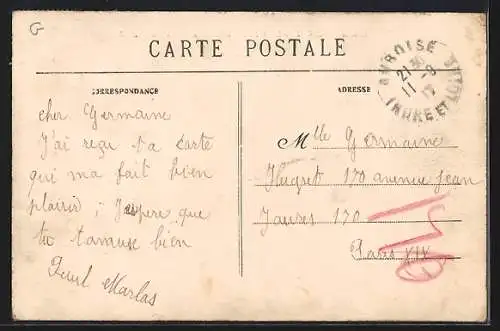 G
CARTE POSTALE
CORRESPONDANCE
ADRESSE
AMBOISE
21 30
11 - 8
17
INDRE ET LOIRE
cher Germaine
J'ai reçu ta carte
qui ma fait bien
plaisir ; J'espere que
tu tamuse bien
Marlas
Mlle Germaine
170 avenue Jean
Jaures 170
Paris XIX